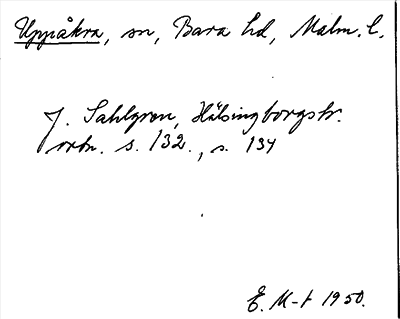 Uppåkra, sn, Bara hd, Malm. l.
J. Sahlgren, Hälsingborgstr.
ortn. s. 132., s. 134
E. M-t 1950.